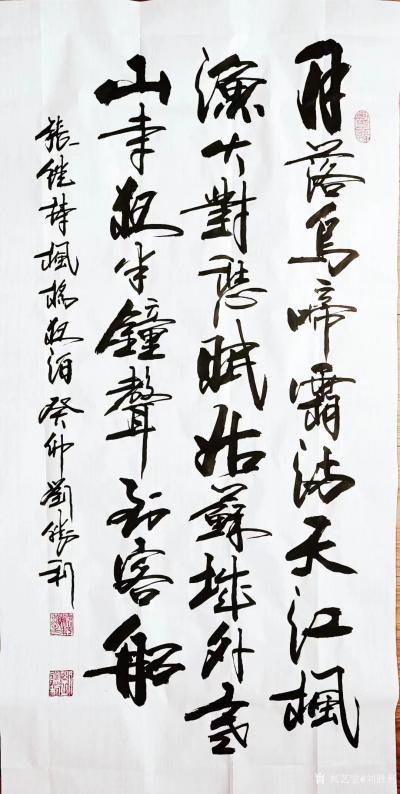 月落烏啼霜滿天江楓
漁火對愁眠姑蘇城外寒
山寺夜半鐘聲到客船
張繼詩楓橋夜泊癸卯劉勝利